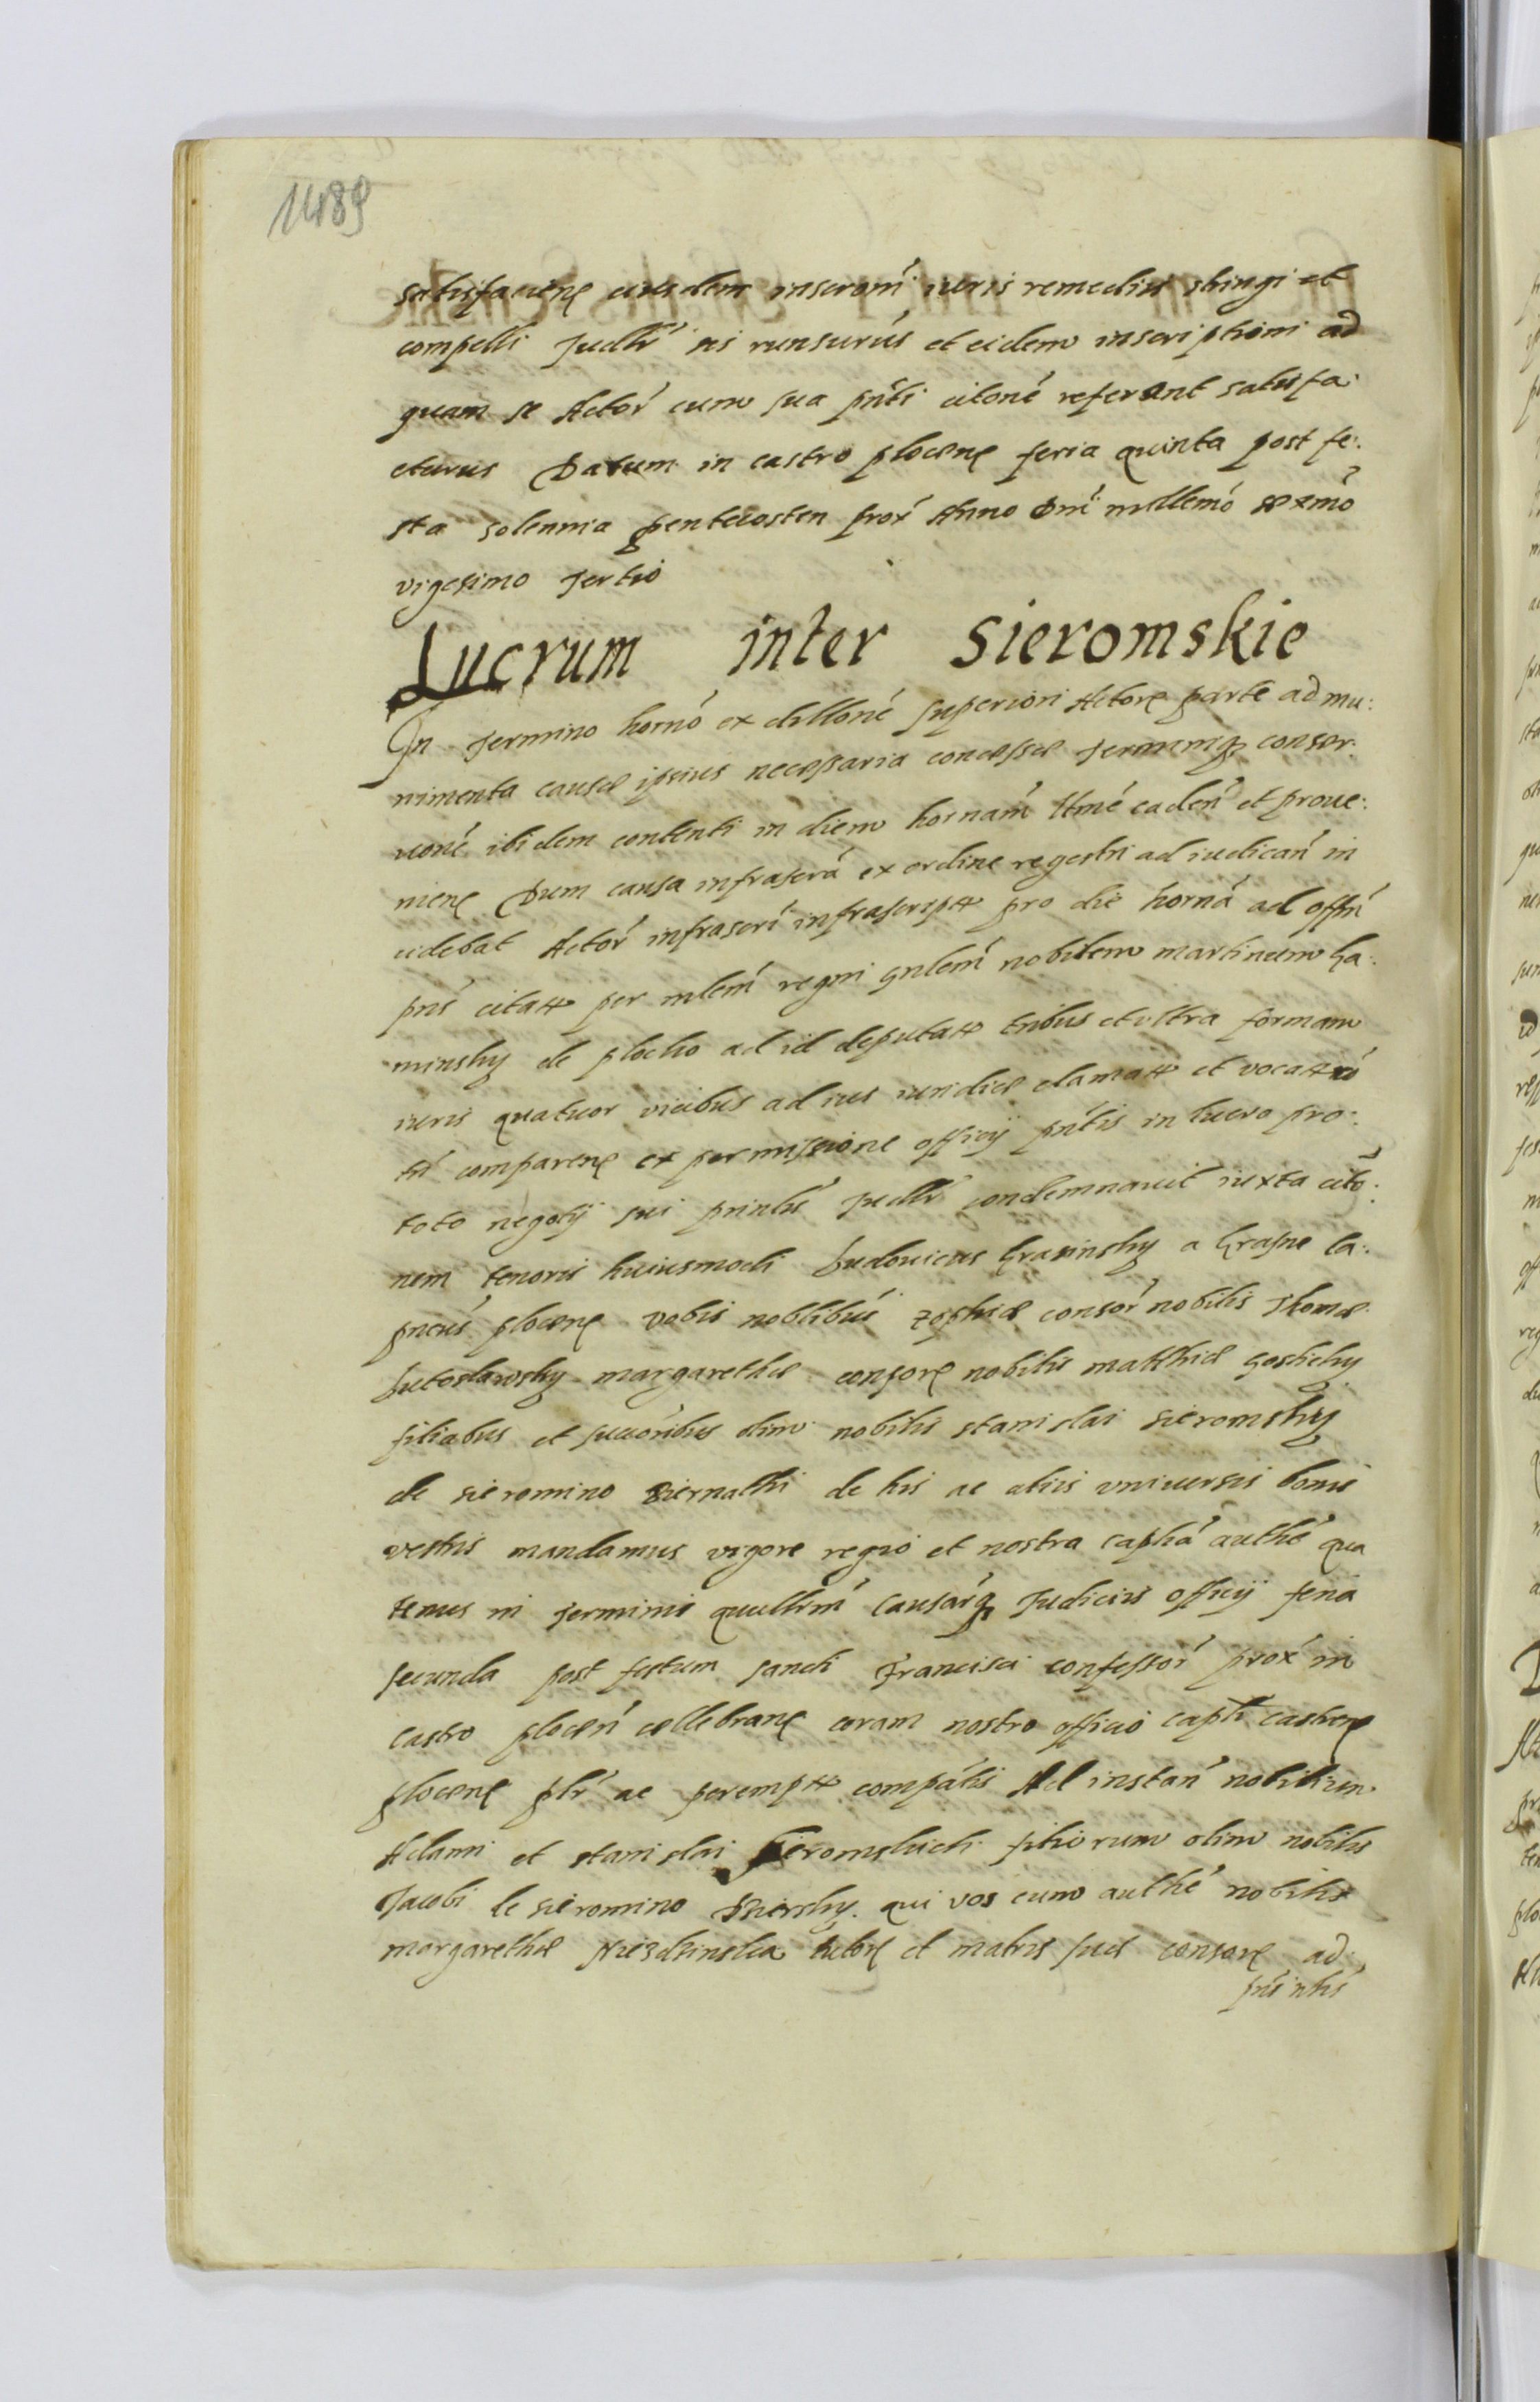 1489
satisfacienę eiusdem inscronis iuris remediis stringi et
compelli Judlr ris runsurus et eidem inscriptioni ad
quam se Actor cum sua pnti citone referant satisfa:
cturus Datum in castro plocenę feria quinta post fe:
sta solennia pentecosten prox Anno Dni millemo sexmo
vigesimo tertio
Lucrum inter Sieromskie
In termino horno ex dillone superiori Actorę parte ad mu:
nimenta causæ ipsius necessaria concessæ terminiq conser:
uone ibidem contenti in diem hornam ltme caden et proue:
nienę Dum causa infrascra ex ordine regestri ad iudican in
cidebat Actor infrascri infrascript pro die horna ad offn
pns citat per mlem regni gnlem nobilem martinum Ka:
minsky de plocko ad id deputat tribus et ultra formam
iuris quatuor vicibus ad ius iuridice clamat et vocat no
tn comparenę ex permissione officij pntis in lucro pro:
toto negotij sui printis Judlr condemnauit iuxta cito:
nem tenoris huiusmodi Ludouicus Krasinsky a Krasne Ca:
pneus plocenę vobis noblibus zophiæ consor nobilis Thomæ
Lutoslawsky margarethæ consorę nobilis matthiæ Gosticky
filiabus et succoribus olim nobilis stanislai sieromsky
de sieromino Biernathi de his ac aliis vniuersis bonis
vestris mandamus vigore regio et nostra caphā authē qua
tenus in terminis quullrm causarq Judiciis officij feria
secunda post festum sancti Francisci confessor prox in
castro plocen cellebranę coram nostro officio capli castrenę
plocenę plr ac perempt compatis Ad instan nobilium
Adami et stanislai Sieromskich filiorum olim nobilis
Jacobi de sieromino qui vos cum authe nobilis
margarethæ tutorę et matris suæ consorę ad
pnintis